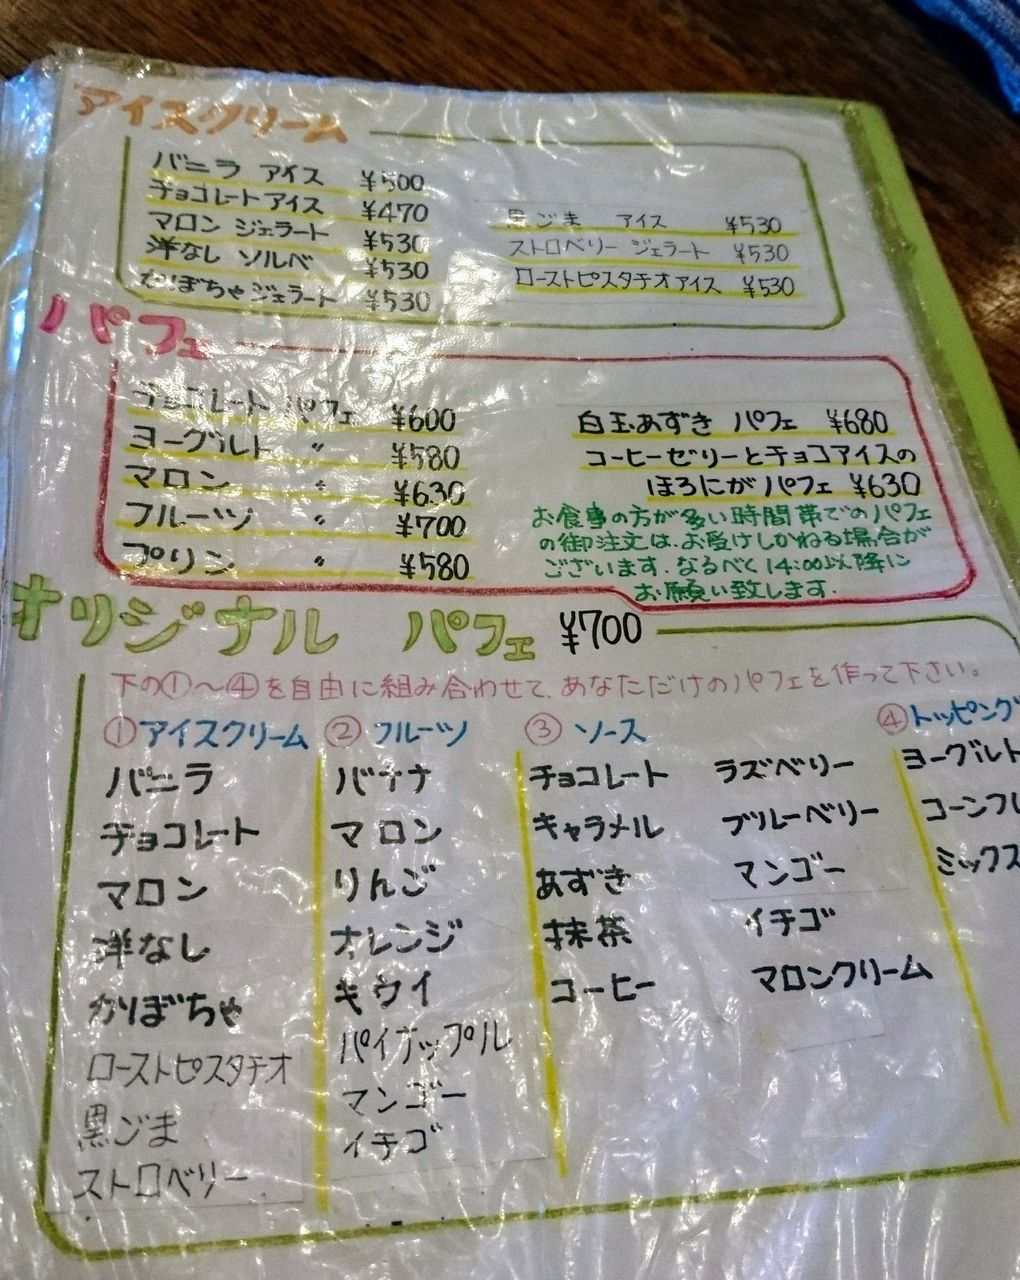 アイスクリーム
バニラ アイス ¥500
チョコレートアイス ¥470
マロン ジェラート ¥530
洋なし ソルベ ¥530
かぼちゃジェラート ¥530
黒ごま アイス ¥530
ストロベリー ジェラート ¥530
ローストピスタチオアイス ¥530
パフェ
チョコレート パフェ ¥600
ヨーグルト 〃 ¥580
マロン 〃 ¥630
フルーツ 〃 ¥700
プリン 〃 ¥580
白玉あずき パフェ ¥680
コーヒーゼリーとチョコアイスの
ほろにがパフェ ¥630
お食事の方が多い時間帯でのパフェ
の御注文は、お受けしかねる場合が
ございます。なるべく14:00以降に
お願い致します.
オリジナル パフェ ¥700
下の①〜④を自由に組み合わせて、あなただけのパフェを作って下さい。
①アイスクリーム
バニラ
チョコレート
マロン
洋なし
かぼちゃ
ローストピスタチオ
黒ごま
ストロベリー
② フルーツ
バナナ
マロン
りんご
オレンジ
キウイ
パイナップル
マンゴー
イチゴ
③ ソース
チョコレート
キャラメル
あずき
抹茶
コーヒー
ラズベリー
ブルーベリー
マンゴー
イチゴ
マロンクリーム
④トッピング
ヨーグルト
コーンフレ
ミックス